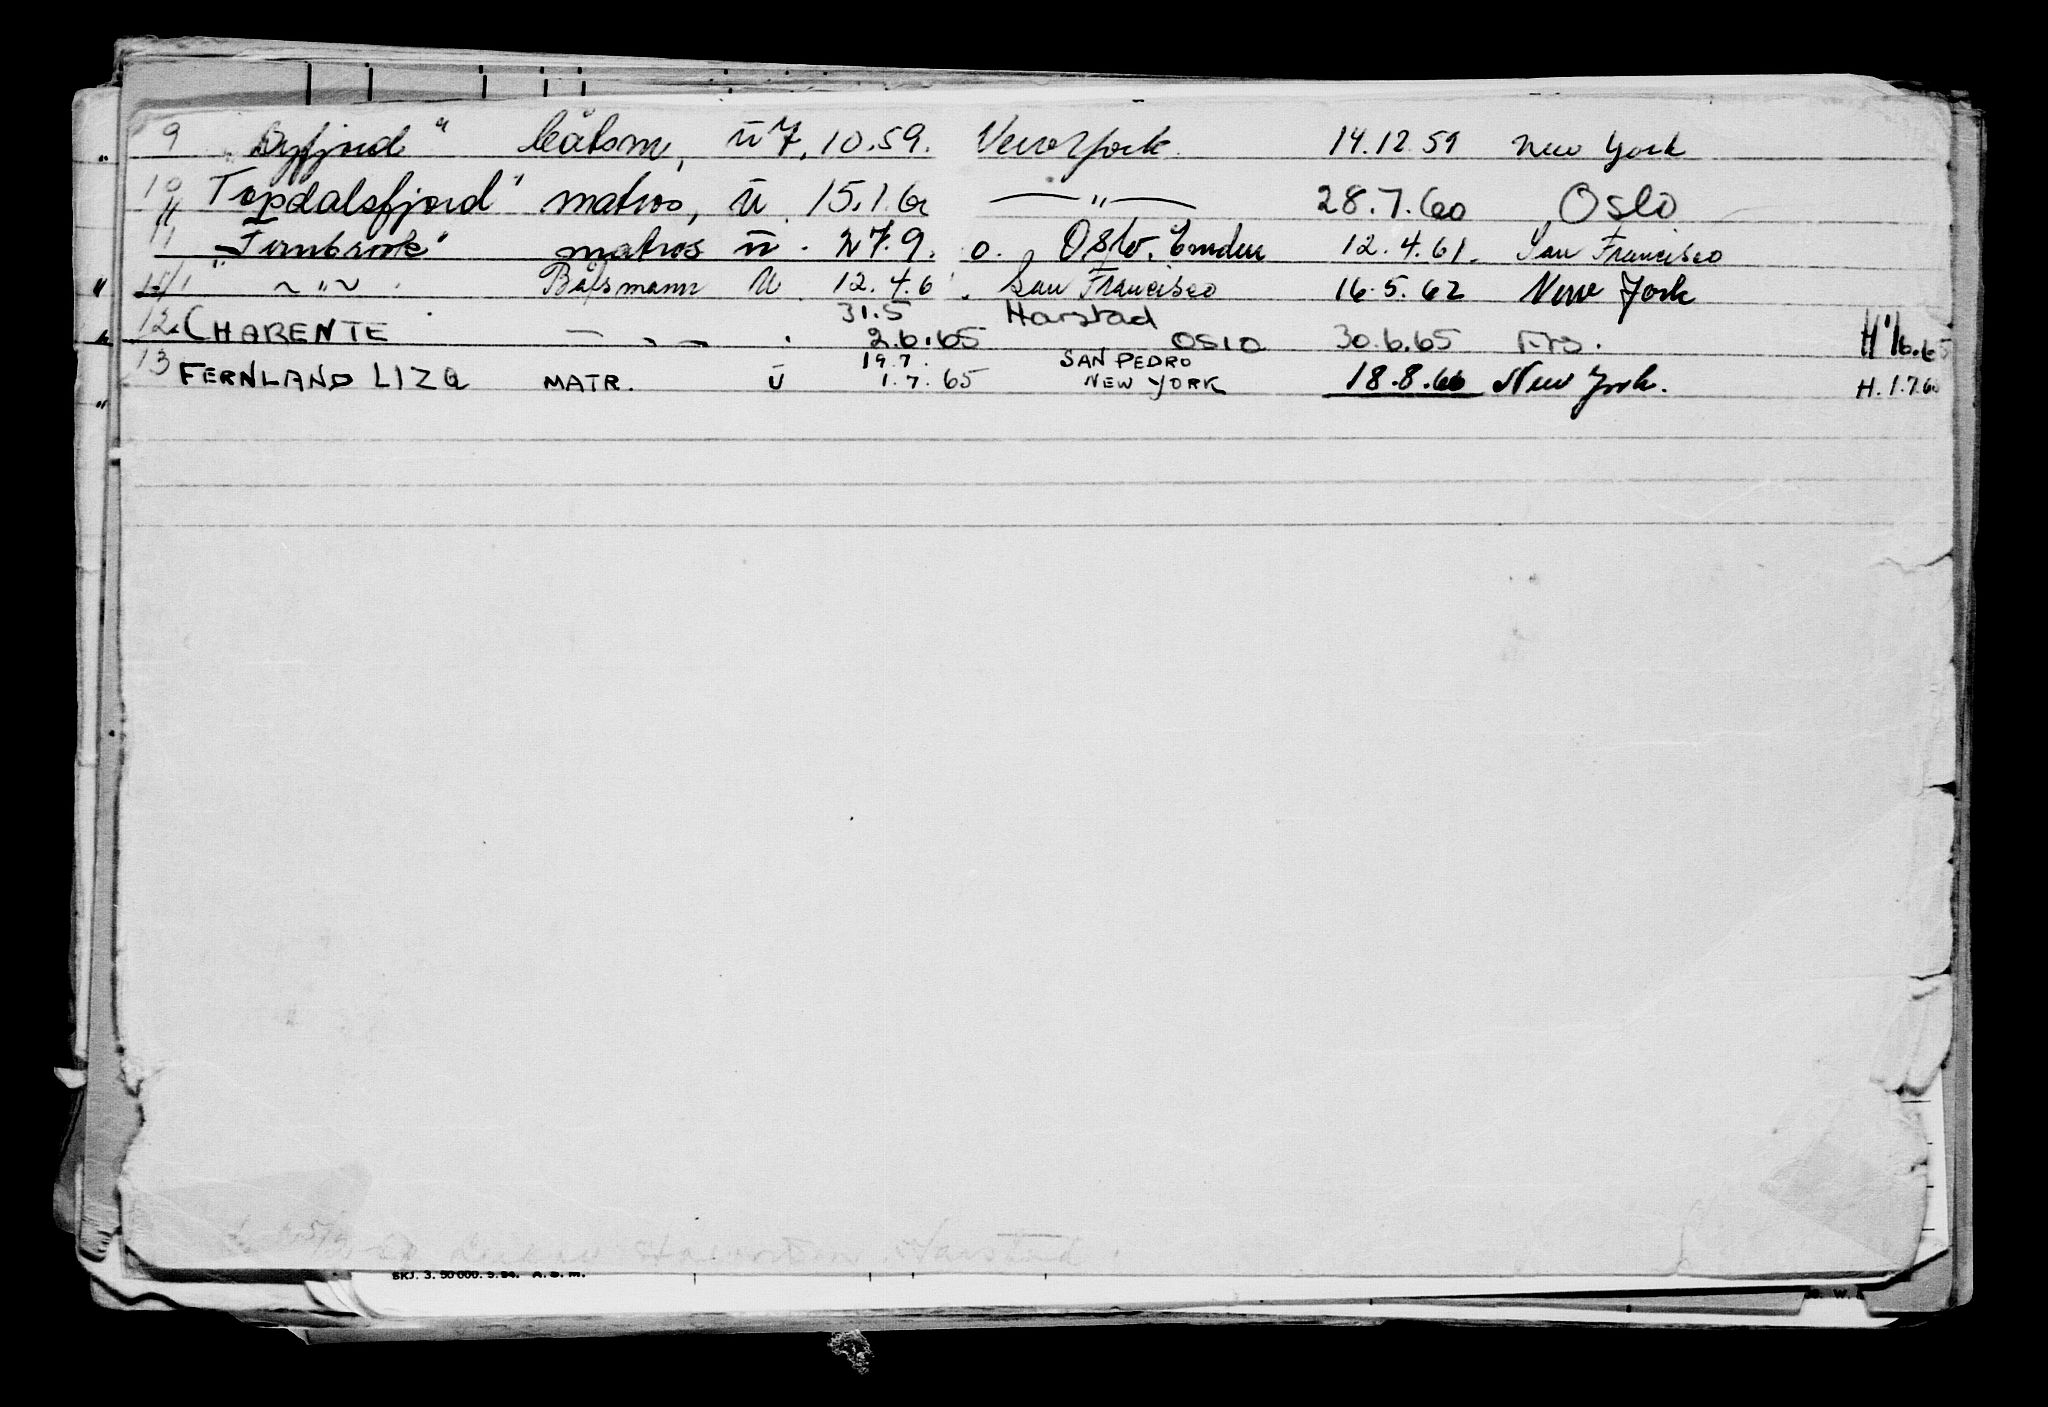 9 "Byfjord" båtsm, ū 7.10.59. New York. 14.12.59 New York
10 Topdalsfjord" matros, ū. 15.1.60 —„— 28.7.60 Oslo
11 "Fernbrook" matros ū. 27.9. o. Oslo. Emden 12.4.61. San Francisco
~"~ Båtsmann ū. 12.4.6 San Francisco 16.5.62 New York
31.5 Harstad
12. CHARENTE — „ — . 2.6.65 OSLO 30.6.65 H 1/6.65
19.7. SAN PEDRO
13 FERNLAND LIZQ MATR. ū 1.7.65 NEW YORK 18.8.66 New York. H. 1.7.6
Harstad
SKJ. 3. 50 000. 5.54. A. s. m.